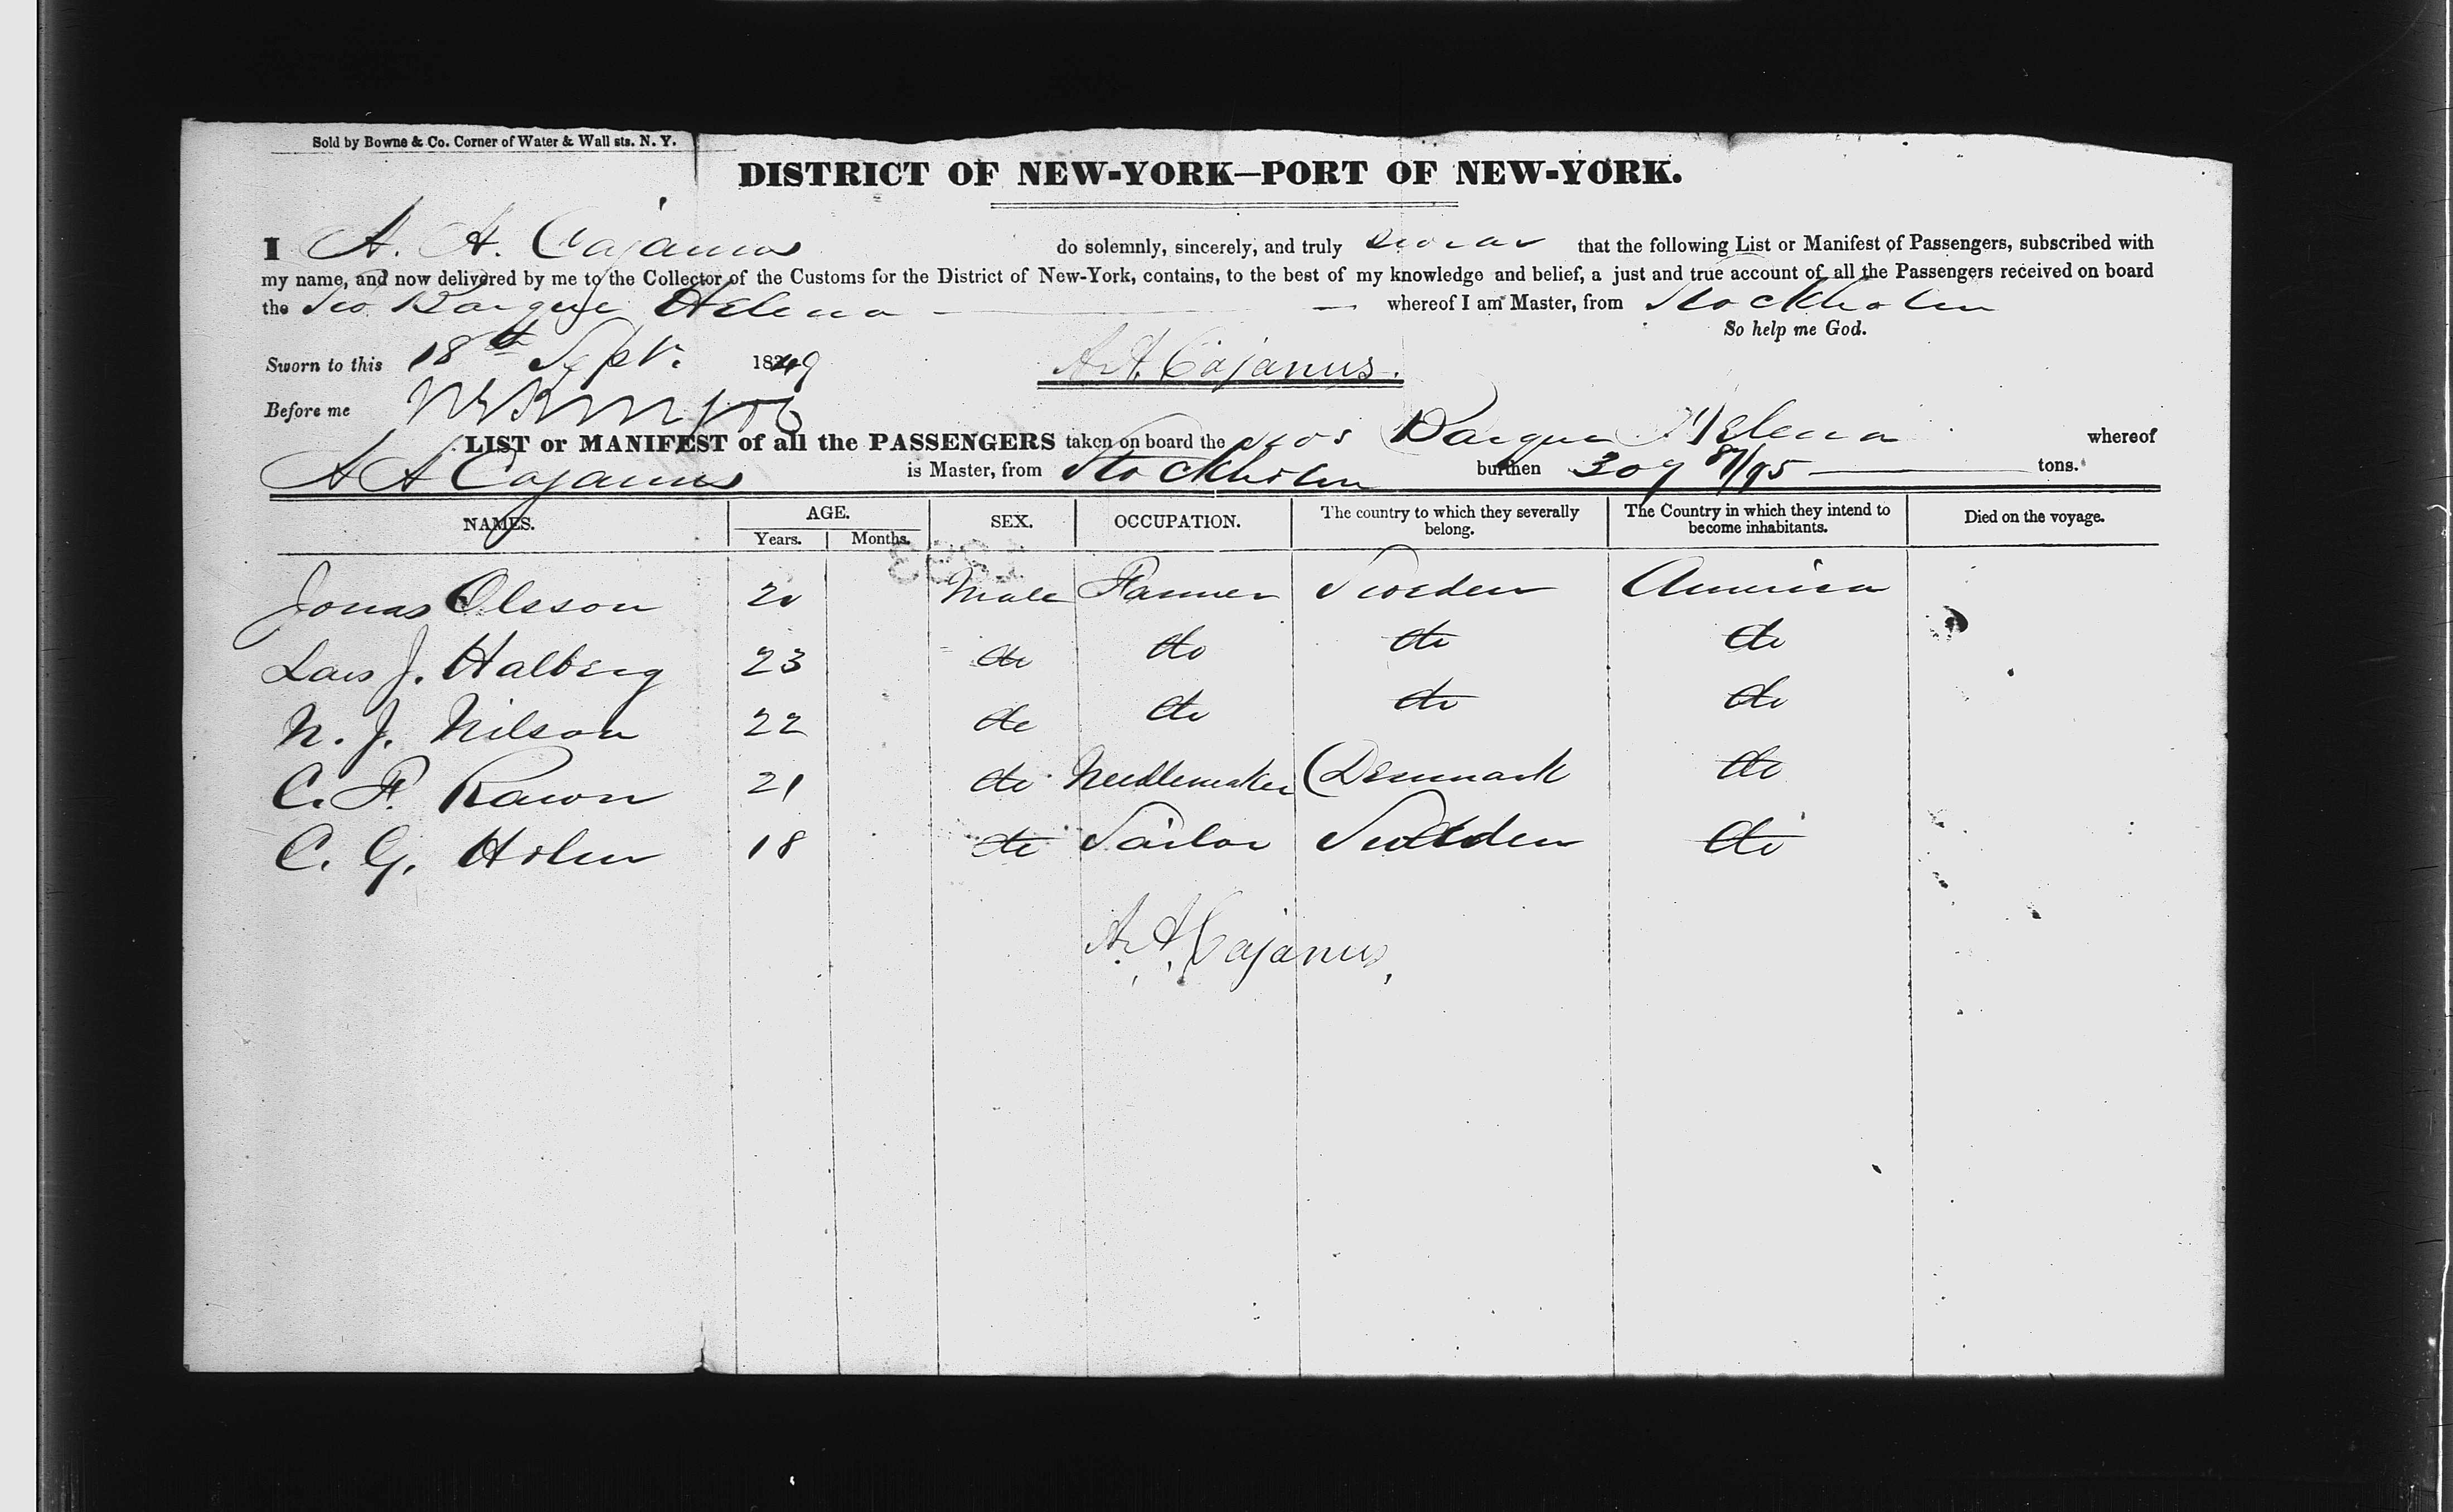 Sold by Bowne & Co. Corner of Water & Wall sts. N. Y.
DISTRICT OF NEW-YORK—PORT OF NEW-YORK.
I A. A. Cajanus do solemnly, sincerely, and truly swear that the following List or Manifest of Passengers, subscribed with
my name, and now delivered by me to the Collector of the Customs for the District of New-York, contains, to the best of my knowledge and belief, a just and true account of all the Passengers received on board
the Barque Helena — whereof I am Master, from Stockholm
So help me God.
Sworn to this 18th Sept. 1849 A. A. Cajanus.
Before me
LIST or MANIFEST of all the PASSENGERS taken on board the Barque Helena whereof
A A Cajanus is Master, from Stockholm burthen 309 87/95 tons.
NAMES. AGE. SEX. OCCUPATION. The country to which they severally belong. The Country in which they intend to become inhabitants. Died on the voyage.
Years. Months.
Jonas Olsson 20 Male Farmer Sweden America
Lars J. Halberg 23 do do do do
N. J. Nilson 22 do do do do
C. F. Rawn 21 do Needlemaker Denmark do
C. G. Holm 18 do Sailor Sweden do
A. A. Cajanus,